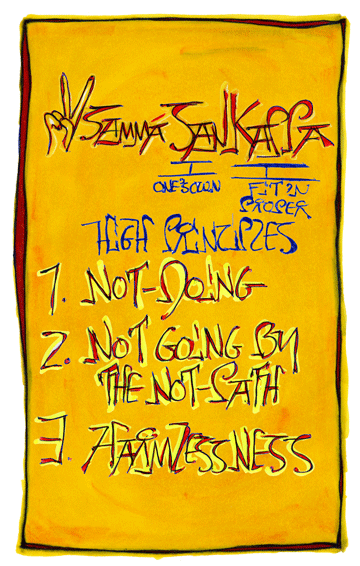 SAMMÁ SANKAPPA
ONE'S OWN
FIT IN
PROPER
HIGH PRINCIPLES
1. NOT-DOING
2. NOT GOING BY
THE NOT-PATH
3. HARMLESSNESS